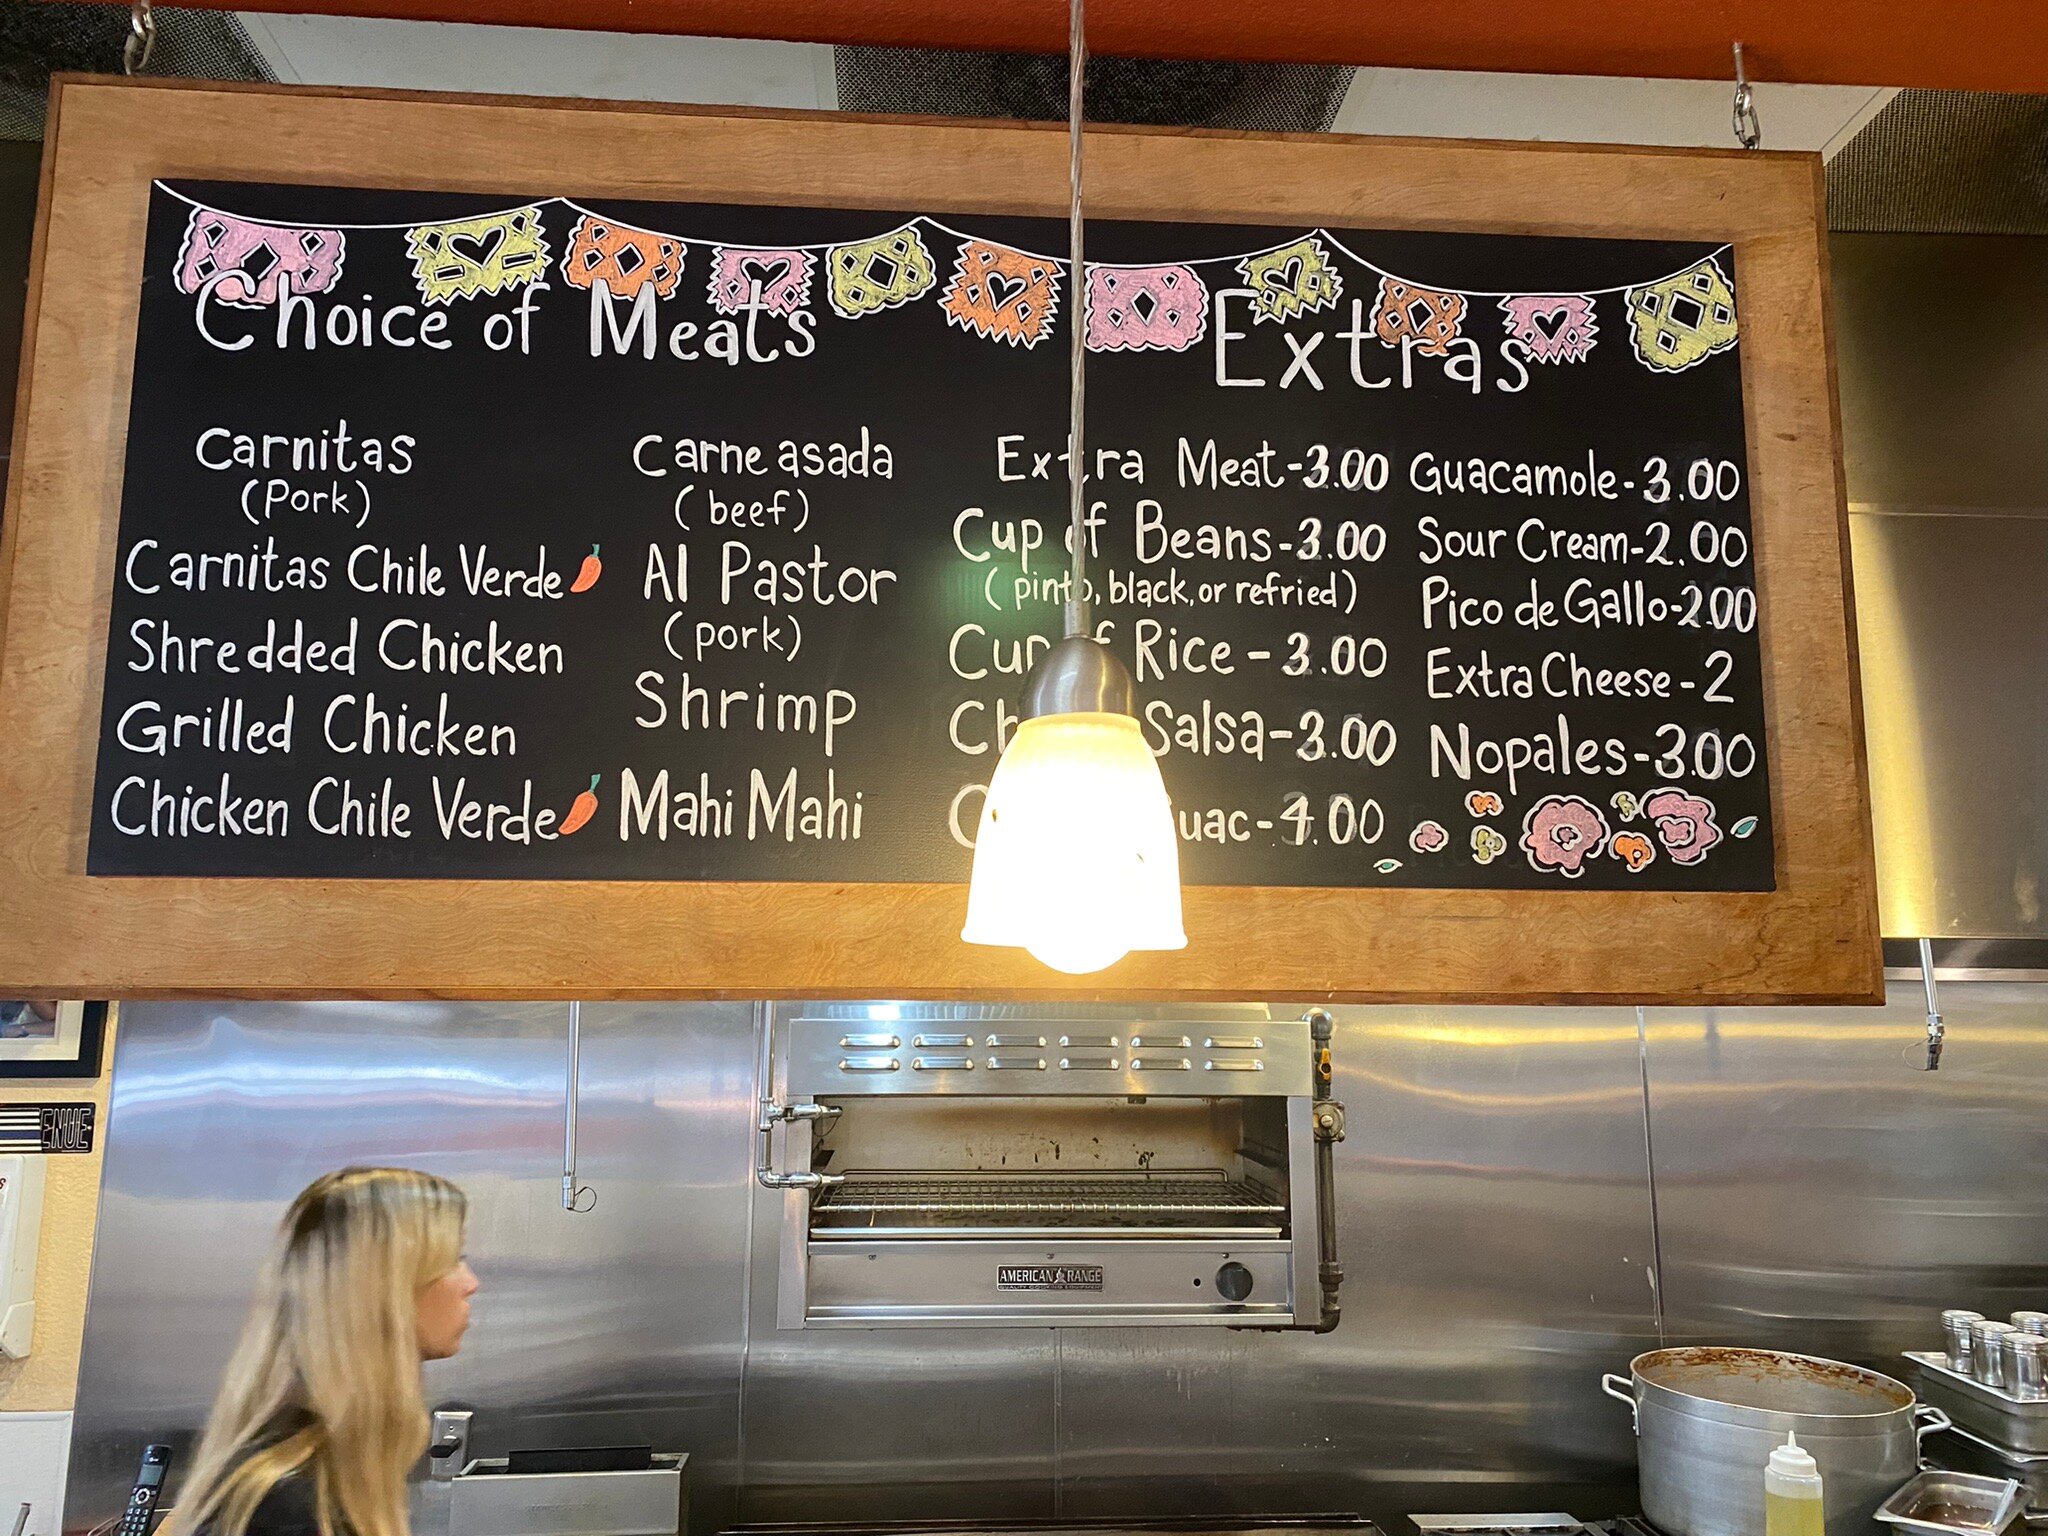 Choice of Meats
Carnitas
(Pork)
Carnitas Chile Verde
Shredded Chicken
Grilled Chicken
Chicken Chile Verde
Carne asada
(beef)
Al Pastor
(pork)
Shrimp
Mahi Mahi
Extras
Extra Meat-3.00
Cup of Beans-3.00
(pinto, black, or refried)
Cup of Rice-3.00
Salsa-3.00
-4.00
Guacamole-3.00
Sour Cream-2.00
Pico de Gallo-2.00
Extra Cheese-2
Nopales-3.00
ENUE
AMERICAN RANGE